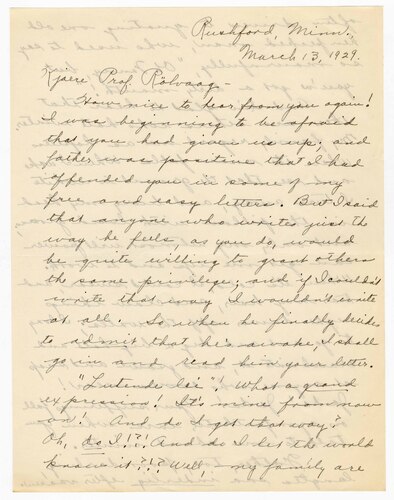 Rushford, Minn.
March 13, 1929.
Kjaere Prof. Rölvaag -
How nice to hear from you again!
I was beginning to be afraid
that you had given us up; and
father was positive that I had
offended you in some of my
free and easy letters. But I said
that anyone who writes just the
way he feels, as you do, would
be quite willing to grant others
the same privilege; and if I couldn't
write that way I wouldn't write
at all. So when he finally decides
to admit that he's awake, I shall
go in and read him your letter.
"Lutende lei"! What a grand
expression! It's mine from now
on! And do I get that way?
Oh, do I!?! And do I let the world
know it?!? Well, my family are